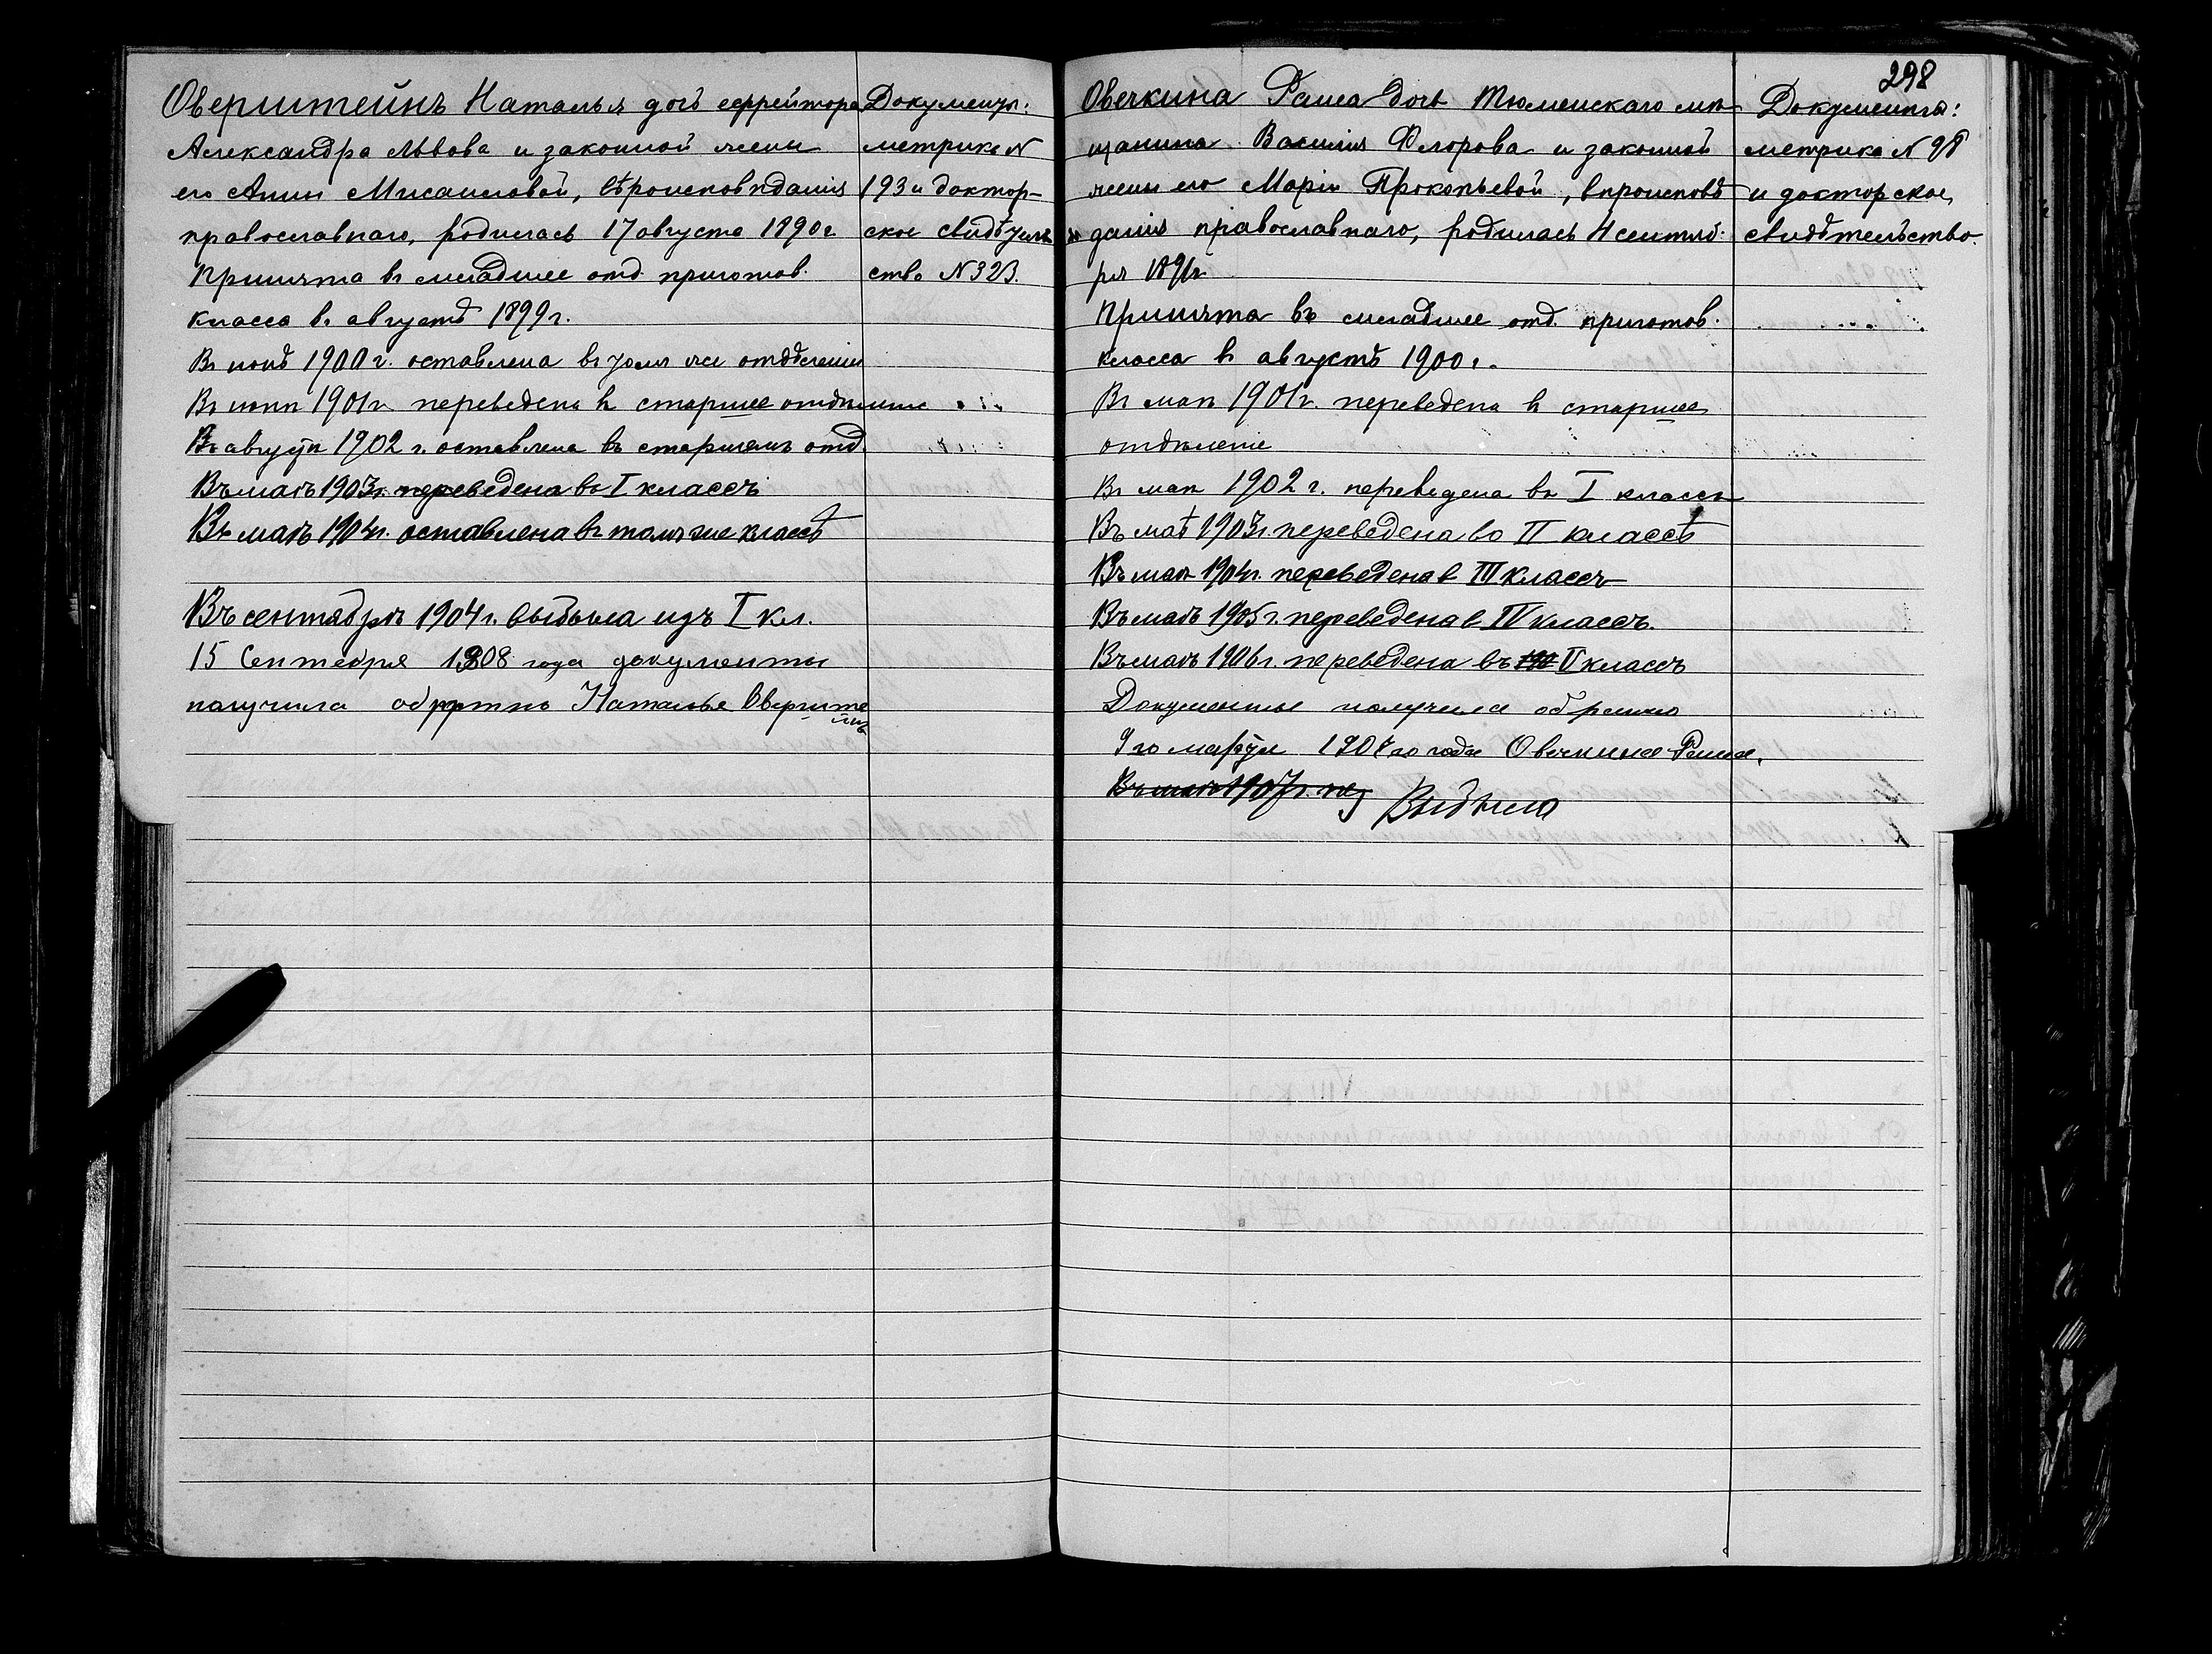 Оверштейнъ Наталья дочь ефрейтора
Александра Львова и законной жены
его Анны Мисаиловой, вѣроисповѣданія
православнаго, родилась 17 августа 1890 г.
Принята въ младшее отд. приготов.
класса въ августѣ 1899 г.
Въ 1900 г. оставлена въ томъ же отдѣленіи
Въ 1901 г. переведена въ старшее отдѣленіе
Въ августѣ 1902 г. оставлена въ старшемъ отд.
Въ маѣ 1903 г. переведена въ I классъ
Въ маѣ 1904 г. оставлена въ томъ же классѣ
Въ сентябрѣ 1904 г. выбыла изъ I кл.
15 Сентября 1908 года документы
получила обратно Наталья Оверште
йнъ
Документы:
метрика N
193 и доктор-
ское свидѣтель
ство N 323.
298
Овечкина Раиса дочь Тюменскаго мѣ-
щанина Василія Флорова и законной
жены его Маріи Прокопьевой, вѣроисповѣ
данія православнаго, родилась 4 сентяб-
ря 1891 г.
Принята въ младшее отд. приготов.
класса въ августѣ 1900 г.
Въ маѣ 1901 г. переведена въ старшее
отдѣленіе
Въ маѣ 1902 г. переведена въ I классъ
Въ маѣ 1903 г. переведена во II классъ
Въ маѣ 1904 г. переведена въ III классъ
Въ маѣ 1905 г. переведена въ IV классъ.
Въ маѣ 1906 г. переведена въ V классъ
Документы получила обратно
9 го марта 1907 го года Овечкина Раиса.
Въ маѣ 1907 г. пе Выбыла
Документы:
метрика N 98
и докторское
свидѣтельство.